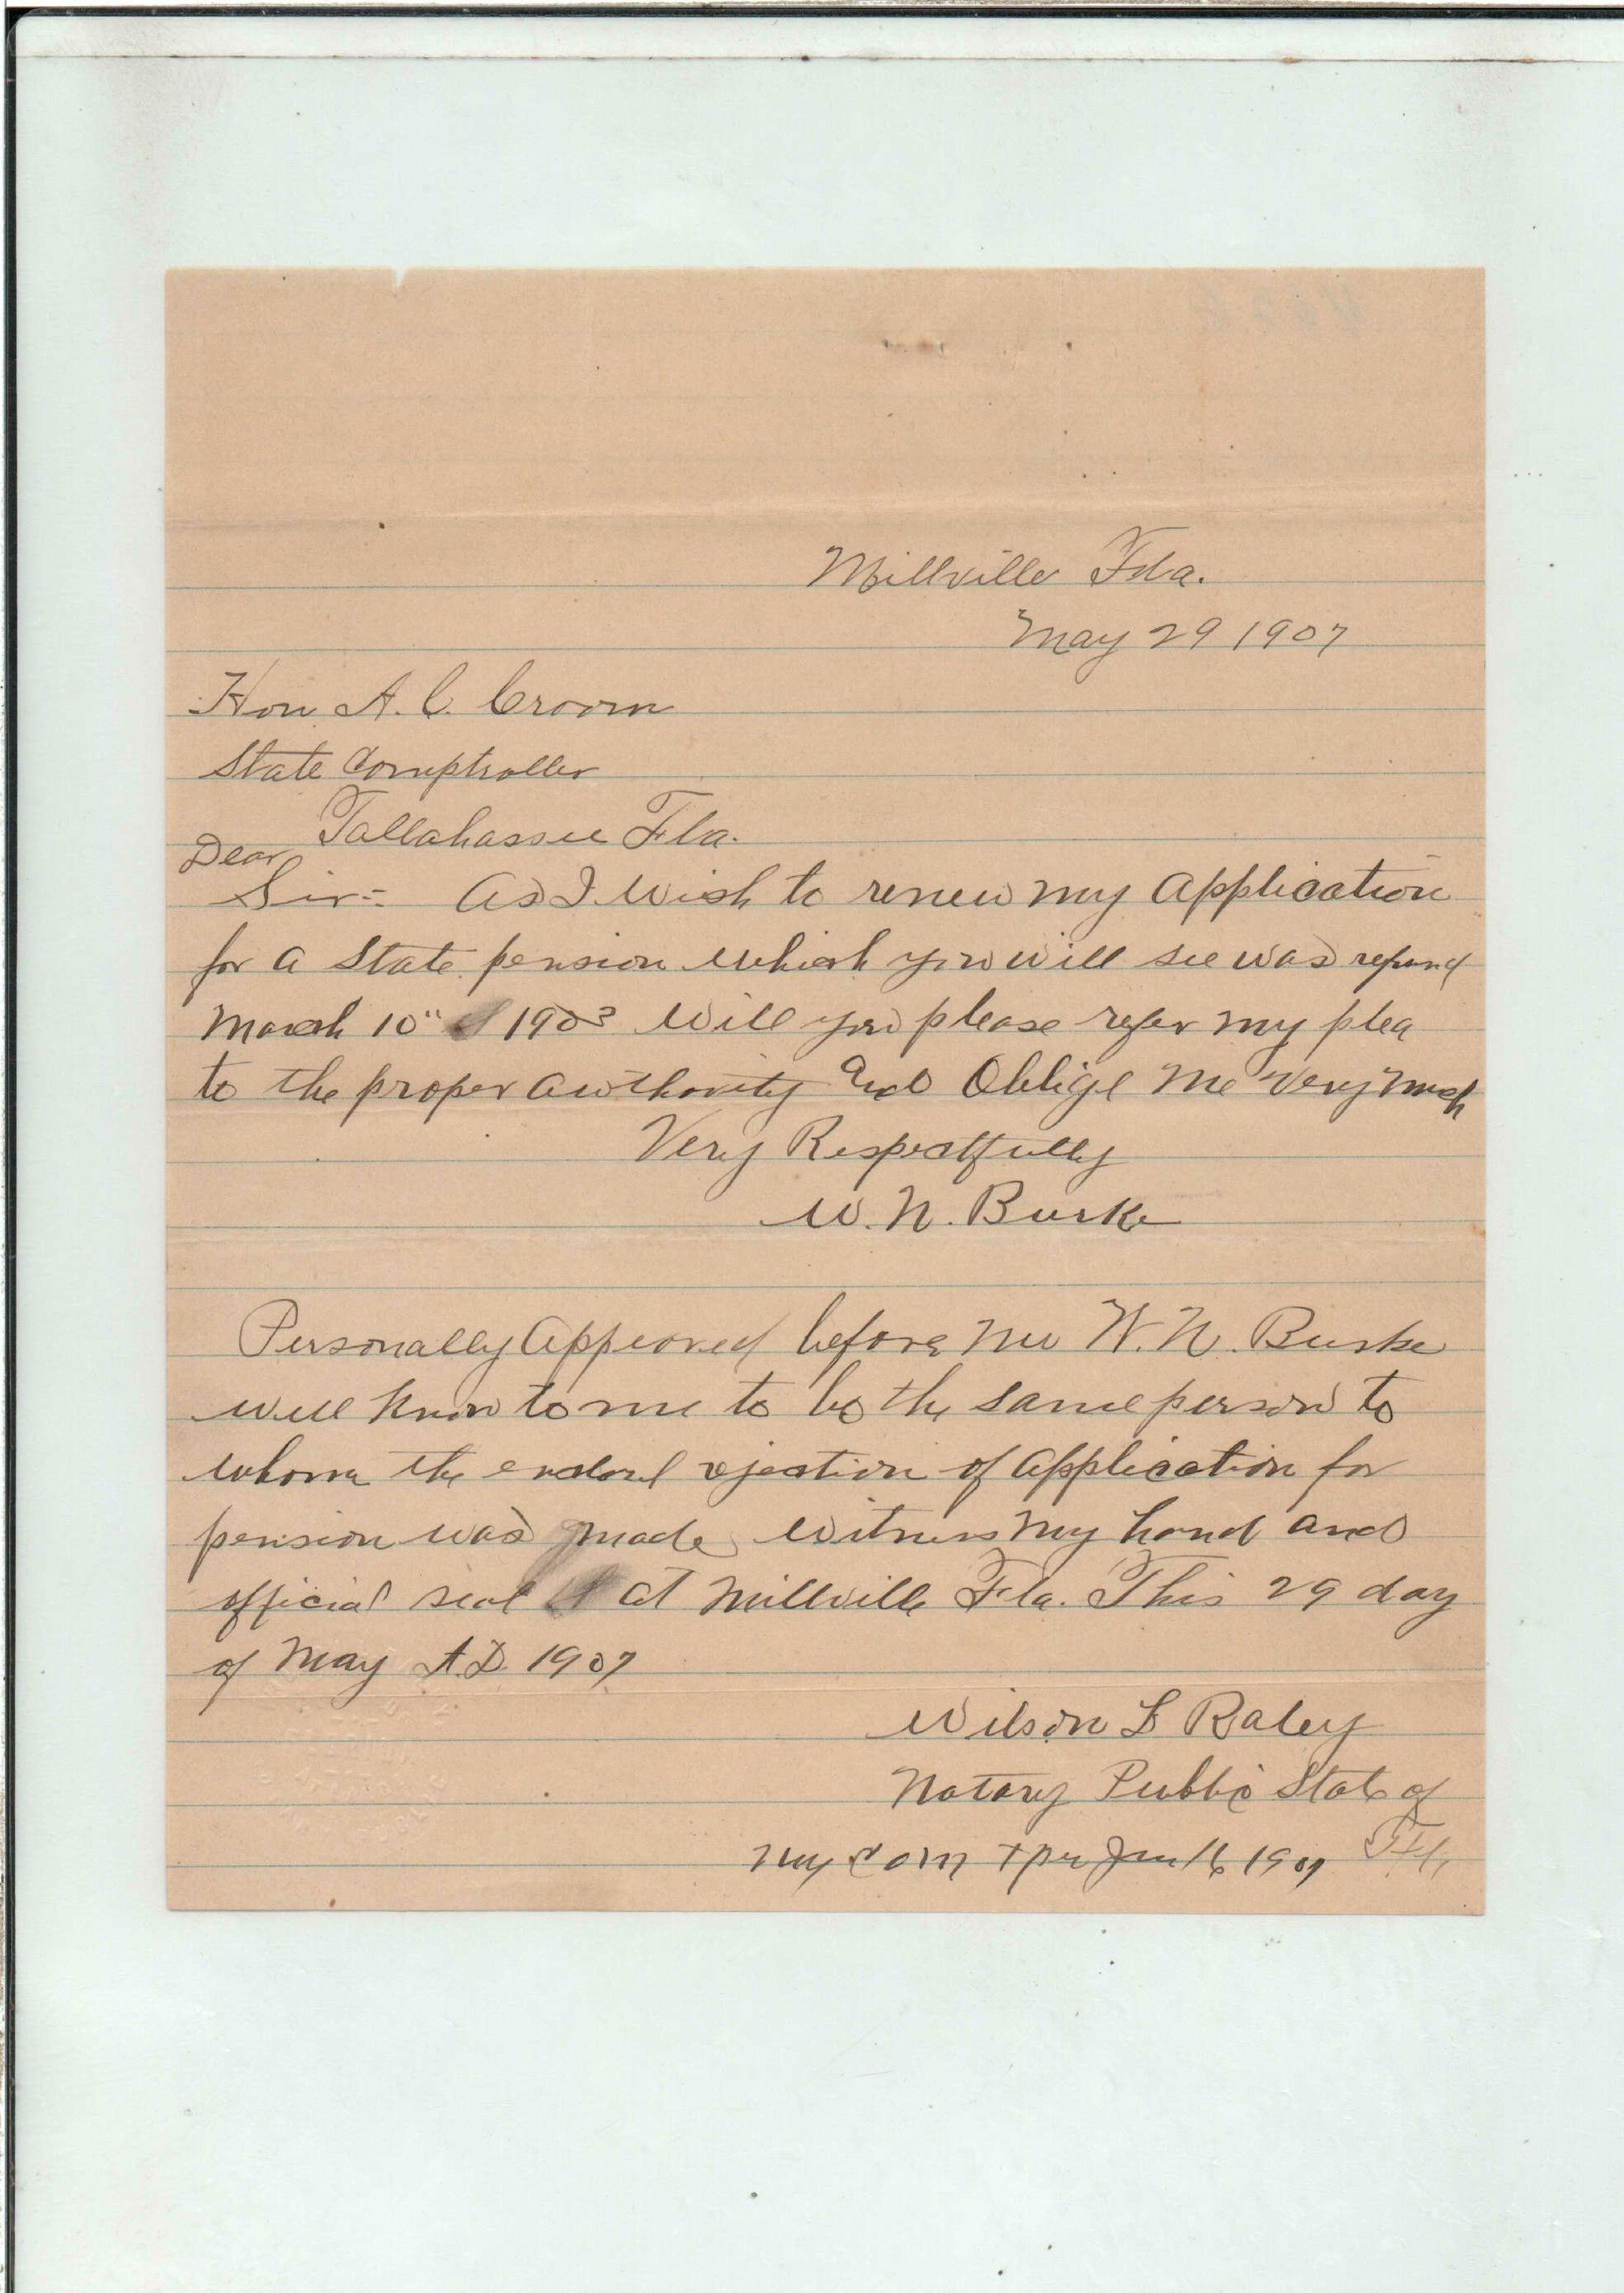 Millville Fla.
May 29 1907
Hon A. C. Croom
State Comptroller
Tallahassee Fla.
Dear
Sir= As I wish to renew my Application
for a State pension which you will see was refused
March 10" 1903 Will you please refer my plea
to the proper authority and Oblige Me Very Much
Very Respectfully
W. N. Burke
Personally Appeared before me W. N. Burke
well known to me to be the same person to
whom the enclosed rejection of application for
pension was made, Witness my hand and
official seal at Millville Fla. This 29 day
of May A.D. 1907
Wilson L Raley
Notary Public State of
Fla
my Com Xpr 16 1909